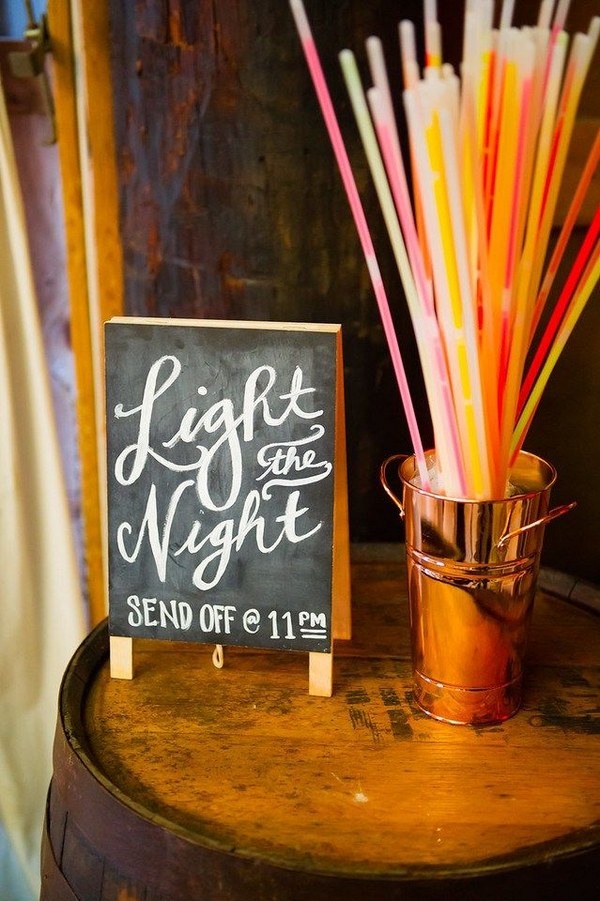 Light
the
Night
SEND OFF @ 11 PM